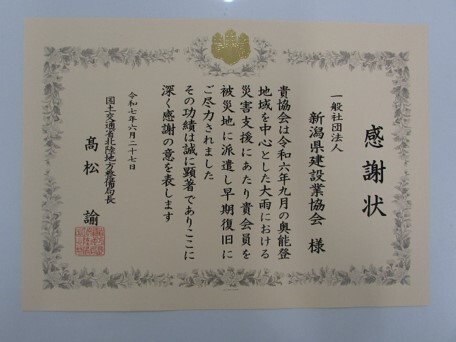 感謝状
一般社団法人
新潟県建設業協会 様
貴協会は令和六年九月の奥能登
地域を中心とした大雨における
災害支援にあたり貴会員を
被災地に派遣し早期復旧に
ご尽力されました
その功績は誠に顕著でありここに
深く感謝の意を表します
令和七年六月二十七日
国土交通省北陸地方整備局長
髙松 諭